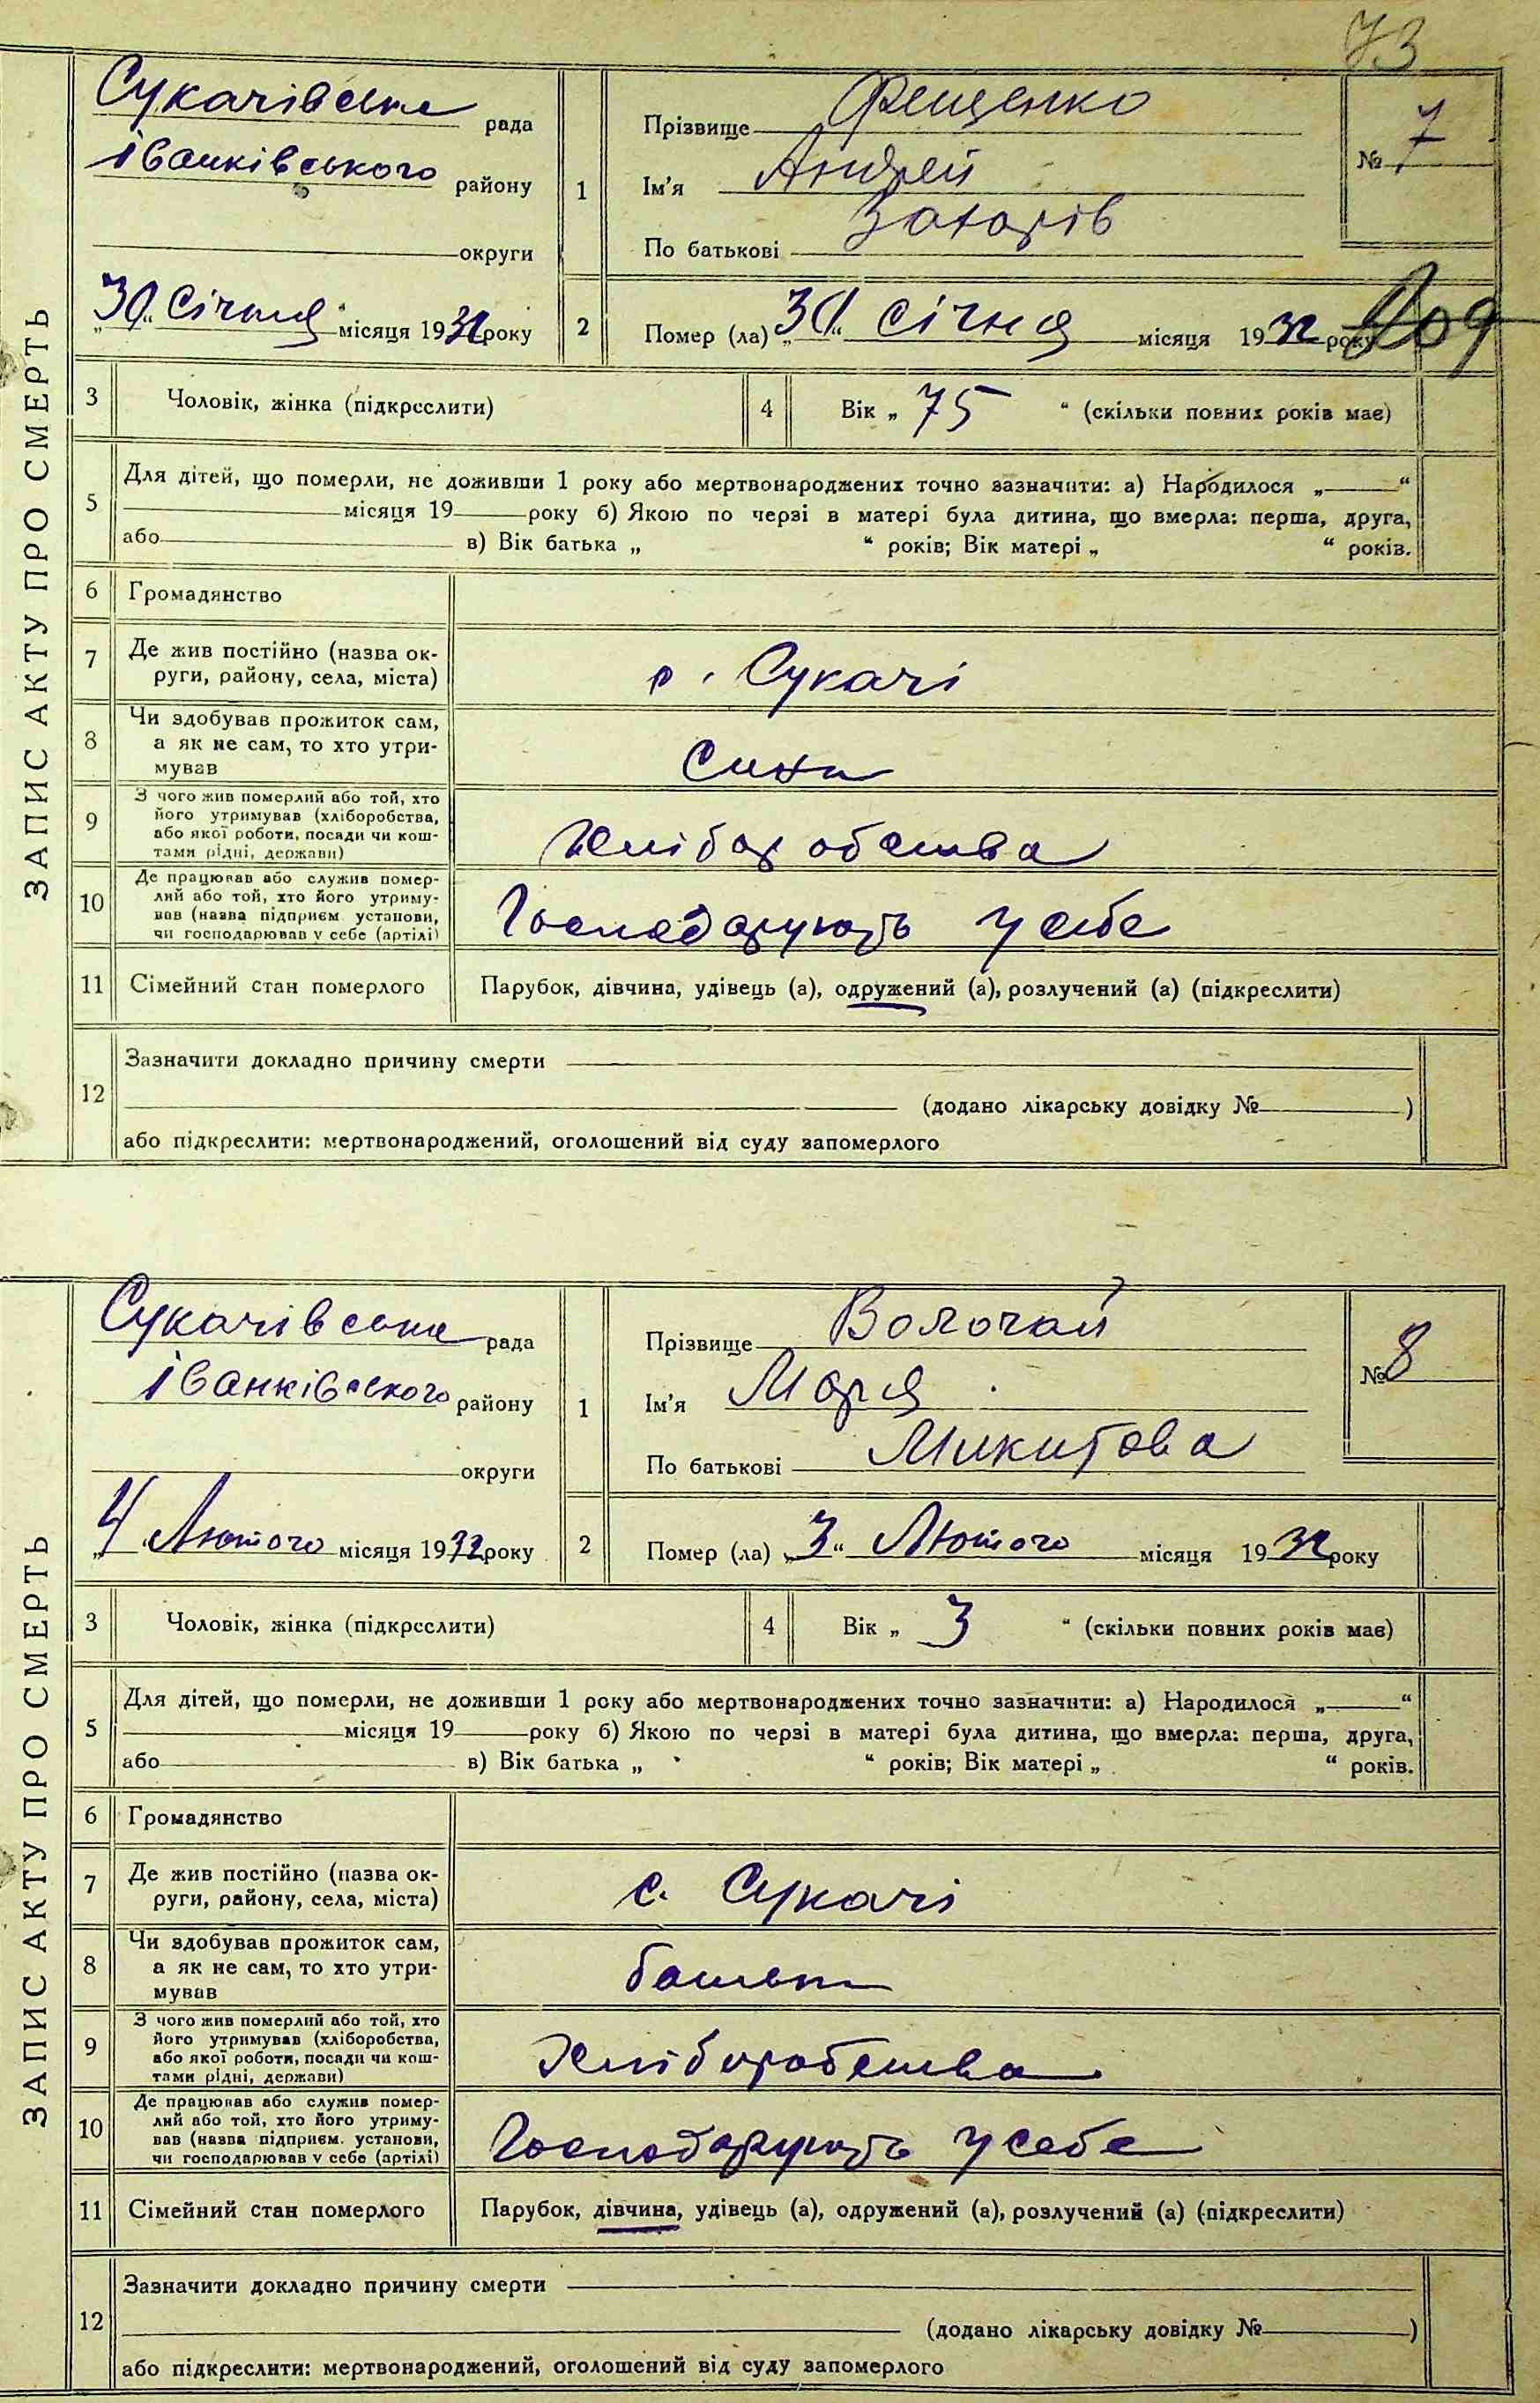 73
ЗАПИС АКТУ ПРО СМЕРТЬ
Сукачівська рада
іванківського району
округи
„30“ Січня місяця 1932 року
1
Прізвище Фещенко
Ім'я Андрей
По батькові Захарів
№ 7
2
Помер (ла) „30“ січня місяця 1932 року
209
3 Чоловік, жінка (підкреслити)
4 Вік „ 75 “ (скільки повних років має)
5 Для дітей, що померли, не доживши 1 року або мертвонароджених точно зазначити: а) Народилося „ “
місяця 19 року б) Якою по черзі в матері була дитина, що вмерла: перша, друга,
або в) Вік батька „ “ років; Вік матері „ “ років.
6 Громадянство
7 Де жив постійно (назва ок-
руги, району, села, міста)
с. Сукачі
8 Чи здобував прожиток сам,
а як не сам, то хто утри-
мував
9 З чого жив померлий або той, хто
його утримував (хліборобства,
або якої роботи, посади чи кош-
тами рідні, держави)
Хліборобства
10 Де працював або служив помер-
лий або той, хто його утриму-
вав (назва підприєм. установи,
чи господарював у себе (артілі)
Господарують у себе
11 Сімейний стан померлого
Парубок, дівчина, удівець (а), одружений (а), розлучений (а) (підкреслити)
12 Зазначити докладно причину смерти
(додано лікарську довідку № )
або підкреслити: мертвонароджений, оголошений від суду запомерлого
ЗАПИС АКТУ ПРО СМЕРТЬ
Сукачівська рада
іванківського району
округи
„4“ Лютого місяця 1932 року
1
Прізвище Волочай
Ім'я Марія
По батькові Микитова
№ 8
2
Помер (ла) „3“ Лютого місяця 1932 року
3 Чоловік, жінка (підкреслити)
4 Вік „ 3 “ (скільки повних років має)
5 Для дітей, що померли, не доживши 1 року або мертвонароджених точно зазначити: а) Народилося „ “
місяця 19 року б) Якою по черзі в матері була дитина, що вмерла: перша, друга,
або в) Вік батька „ “ років; Вік матері „ “ років.
6 Громадянство
7 Де жив постійно (назва ок-
руги, району, села, міста)
с. Сукачі
8 Чи здобував прожиток сам,
а як не сам, то хто утри-
мував
9 З чого жив померлий або той, хто
його утримував (хліборобства,
або якої роботи, посади чи кош-
тами рідні, держави)
Хліборобства
10 Де працював або служив помер-
лий або той, хто його утриму-
вав (назва підприєм. установи,
чи господарював у себе (артілі)
Господарують у себе
11 Сімейний стан померлого
Парубок, дівчина, удівець (а), одружений (а), розлучений (а) (підкреслити)
12 Зазначити докладно причину смерти
(додано лікарську довідку № )
або підкреслити: мертвонароджений, оголошений від суду запомерлого